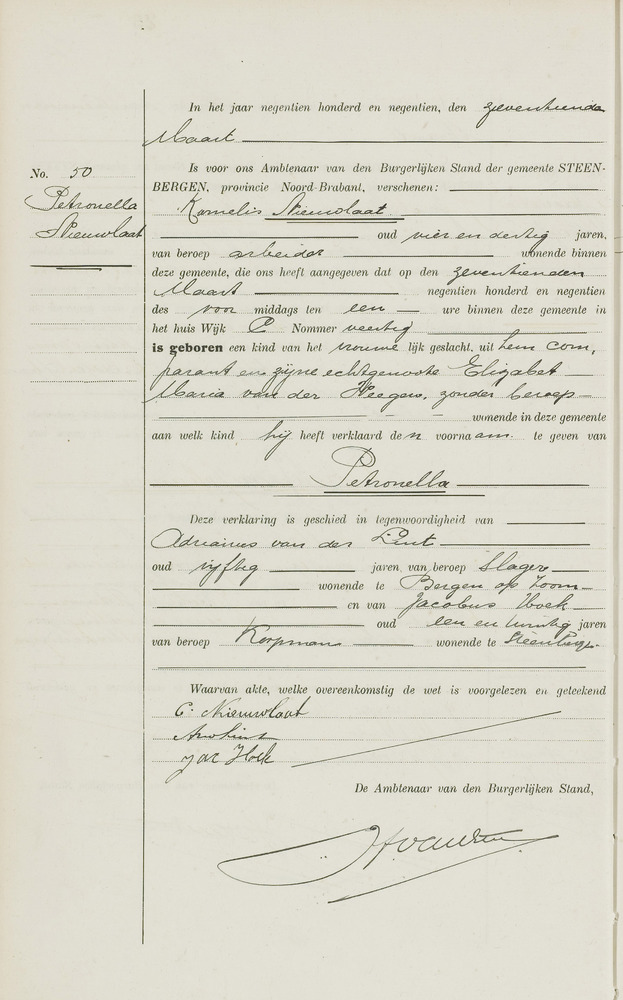 In het jaar negentien honderd en negentien, den zeventienden
Maart
No. 50
Petronella
Nieuwlaat
Is voor ons Ambtenaar van den Burgerlijken Stand der gemeente STEEN-
BERGEN, provincie Noord-Brabant, verschenen:
Kornelis Nieuwlaat
oud vier en dertig jaren,
van beroep arbeider wonende binnen
deze gemeente, die ons heeft aangegeven dat op den zeventienden
Maart negentien honderd en negentien
des voor middags ten een ure binnen deze gemeente in
het huis Wijk C Nommer veertig
is geboren een kind van het vrouwe lijk geslacht, uit hem com,
parant en zijne echtgenoote Elizabet
Maria van der Heegen, zonder beroep
wonende in deze gemeente
aan welk kind hij heeft verklaard den voornaam te geven van
Petronella
Deze verklaring is geschied in tegenwoordigheid van
Adrianus van der Lint
oud vijftig jaren, van beroep Slager
wonende te Bergen op Zoom
en van Jacobus Hoek
oud een en twintig jaren
van beroep Koopman wonende te Steenbergen
Waarvan akte, welke overeenkomstig de wet is voorgelezen en geteekend
C. Nieuwlaat
Jac Hoek
De Ambtenaar van den Burgerlijken Stand,